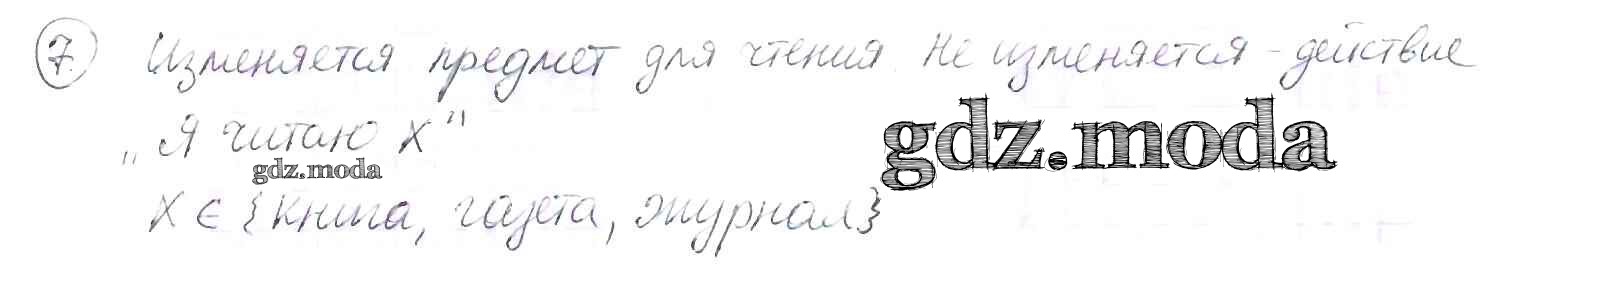 7. Изменяется предмет для чтения. Не изменяется - действие
„Я читаю x"
gdz.moda
gdz.moda
x ∈ {книга, газета, журнал}